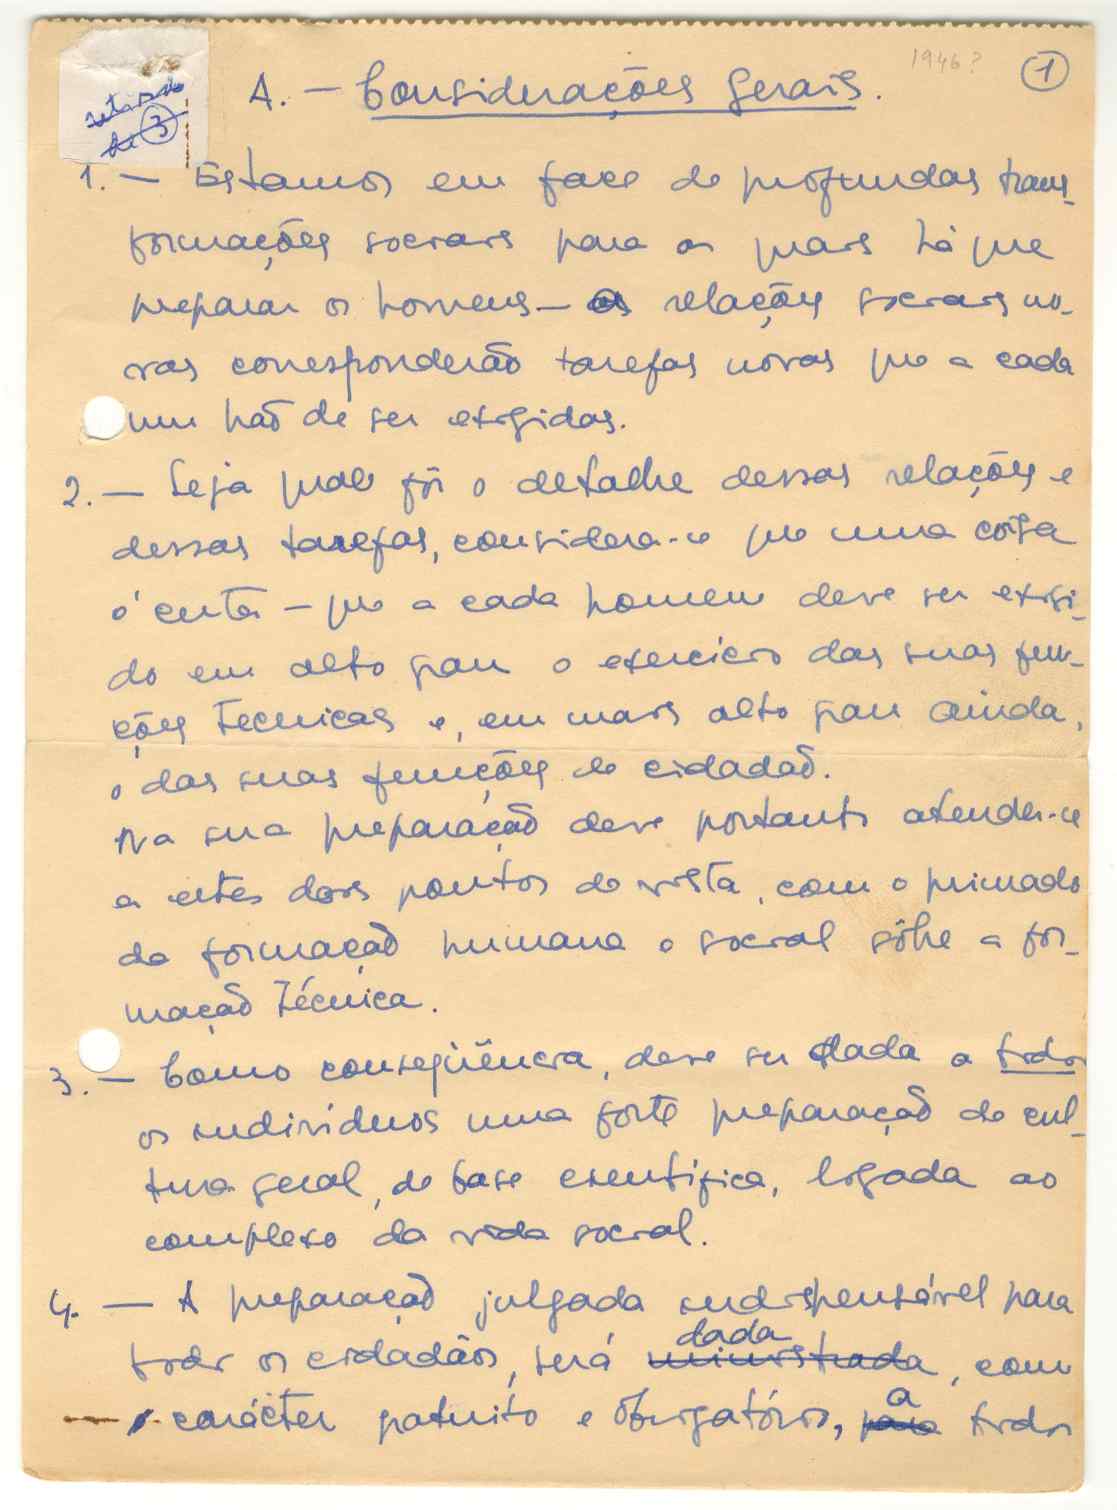 1946?
1
retirado
de 3
A. — Considerações gerais.
1. — Estamos em face de profundas trans-
formações sociais para as quais há que
preparar os homens — as relações sociais no-
vas corresponderão tarefas novas que a cada
um hão de ser exigidas.
2. — Seja qual fôr o detalhe dessas relações e
dessas tarefas, considera-se que uma coisa
é certa — que a cada homem deve ser exigi-
do em alto grau o exercício das suas fun-
ções tecnicas e, em mais alto grau ainda,
o das suas funções de cidadão.
Na sua preparação deve portanto atender-se
a estes dois pontos de vista, com o primado
da formação humana e social sôbre a for-
mação técnica.
3. — Como conseqüência, deve ser dada a todos
os indivíduos uma forte preparação de cul-
tura geral, de base científica, ligada ao
complexo da vida social.
4. — A preparação julgada indispensável para
todos os cidadãos, será ministrada dada, com
carácter gratuito e obrigatório, para a todos